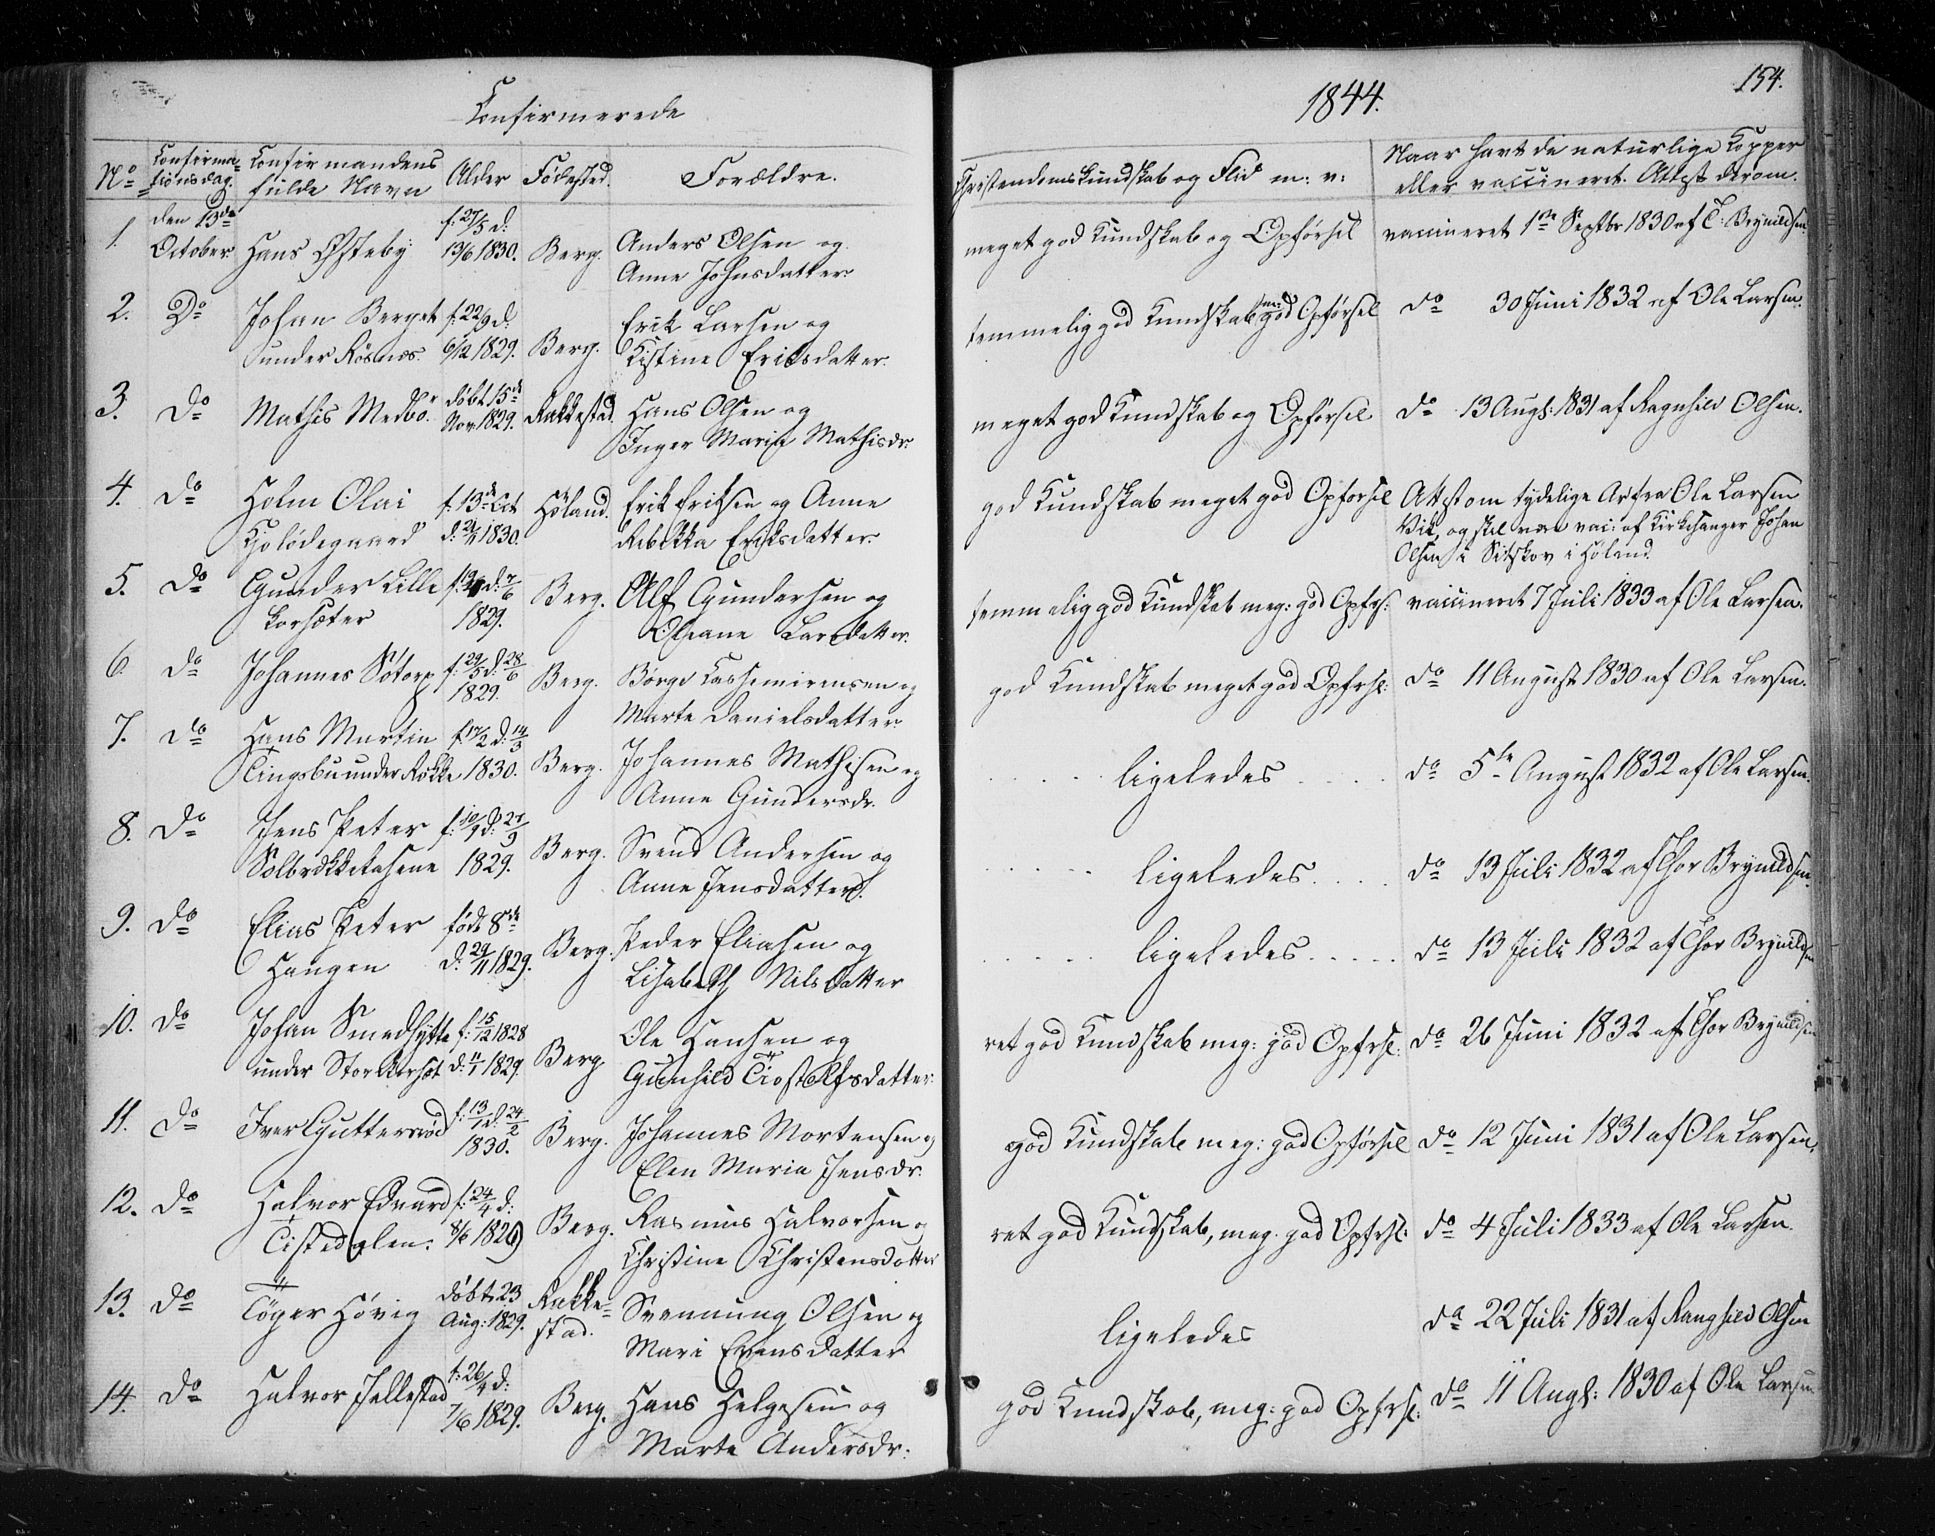 Confirmerede
1844.
154.
No Confirmationsdag. Confirmandens fulde Navn Alder Fødested. Forældre. Christendomskundskab og Flid m: v: Naar havt de naturlige Kopper eller vaccineret. Attest derom.
1. den 13de October Hans Østeby f. 27/5 d: 13/6 1830. Berg. Anders Olsen og Anne Johnsdatter meget god Kundskab og Opførsel vaccineret 1ste Septbr 1830 af T. Brynildsen
2. Do Johan Berget under Rösnæs. f. 22/9 d: 6/12 1829. Berg. Erik Larsen og Kistine Ericsdatter. temmelig god Kundskab god Opførsel do 30 Juni 1832 af Ole Larsen.
3. do Mathis Medbö. döbt 15de Nov. 1829. Rakkestad. Hans Olsen og Inger Maria Mathisdr. meget god Kundskab og Opførsel do 13 Augs: 1831 af Ragnhild Olsen.
4. do Holm Olai Kjolödegaard f. 13de Oct d. 21/11 1830. Höland. Erik Eriksen og Anne Rebekka Eriksdatter. god Kundskab meget god Opforsel Attest om tydelige Ar fra Ole Larsen Vik, og skel være vac: af Kirkesanger Johan Olsen i Sitskov i Höland.
5. do Gunder Lille Korsæter d. 7/6 1829. Berg. Alf Gundersen og Oleane Larsdatter. temmelig god Kundskab meg: god Opfrs: vaccineret 7 Juli 1833 af Ole Larsen.
6. do Johannes Sötorp f. 29/5 d. 28/6 1829. Berg. Börge Cashemirensen og Marte Danielsdatter god Kundskab meget god Opfrsl: do 11 August 1830 af Ole Larsen.
7. do Hans Martin Tingsbu under Rökke f. 17/2 d. 14/3 1830. Berg. Johannes Mathisen og Anne Gundersdr. ligeledes do 5te August 1832 af Ole Larsen
8. do Jens Peter Solbrækkekasene f: 10/9 d: 27/9 1829. Berg. Svend Andersen og Anne Jensdatter. ligeledes do 13 Juli 1832 af Thor Brynildsen.
9. do Elias Peter Hangen födt 8de d. 29/11 1829. Berg. Peder Eliasen og Lisabeth Nilsdatter ligeledes do 13 Juli 1832 af Thor Brynildsen
10. do Johan Smedhytte under Stor Korsæt f: 15/12 1828 d: 11/1 1829. Berg Ole Hansen og Gunhild Tiostolfsdatter. ret god Kundskab meg: god Opfrsl: do 26 Juni 1832 af Thor Brynildsen
11. do Iver Guttersröd f. 13/1 d. 24/2 1830. Berg. Johannes Mortensen og Elen Maria Jensdr. god Kundskab meg: god Opførsel do 12 Juni 1831 af Ole Larsen.
12. do Halvor Edvard Tistedalen. f: 24/4 d: 8/6 1829 Berg. Rasmus Halvorsen og Christine Christensdatter ret god Kundskab, meg. god Opfrsl: do 4 Juli 1833 af Ole Larsen.
13. do Töger Hövig döbt 23 Aug: 1829. Rakkestad. Svenning Olsen og Mari Evensdatter ligeledes do 22 Juli 1831 af Ranghild Olsen
14. do Halvor Jellestad f: 26/4 d: 7/6 1829. Berg. Hans Helgesen og Marte Andersdr: god Kundskab, meg: god Opfrsl: do 11 Augs: 1830 af Ole Larsen